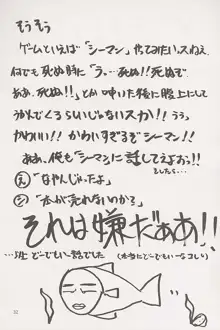 そうそう
ゲームといえば「シーマン」やってみたいスねえ
何でも死ぬ時に「う…死ぬ!!死ぬぞ
ああ、死ぬ!!」とか呟いた後に腹上にして
うかんでくるらしいじゃないスカ!!ううっ
かわいい!!かわいすぎるぞシーマン!!
ああ、俺も「シーマン」に話してえよおっ!!
としたら…
え「なやんじゃったよ」
シ「本が売れないのかる」
それは嫌だああ!!
…班 どーでもいー話でした(本当にどーでもいーなコレ)
52